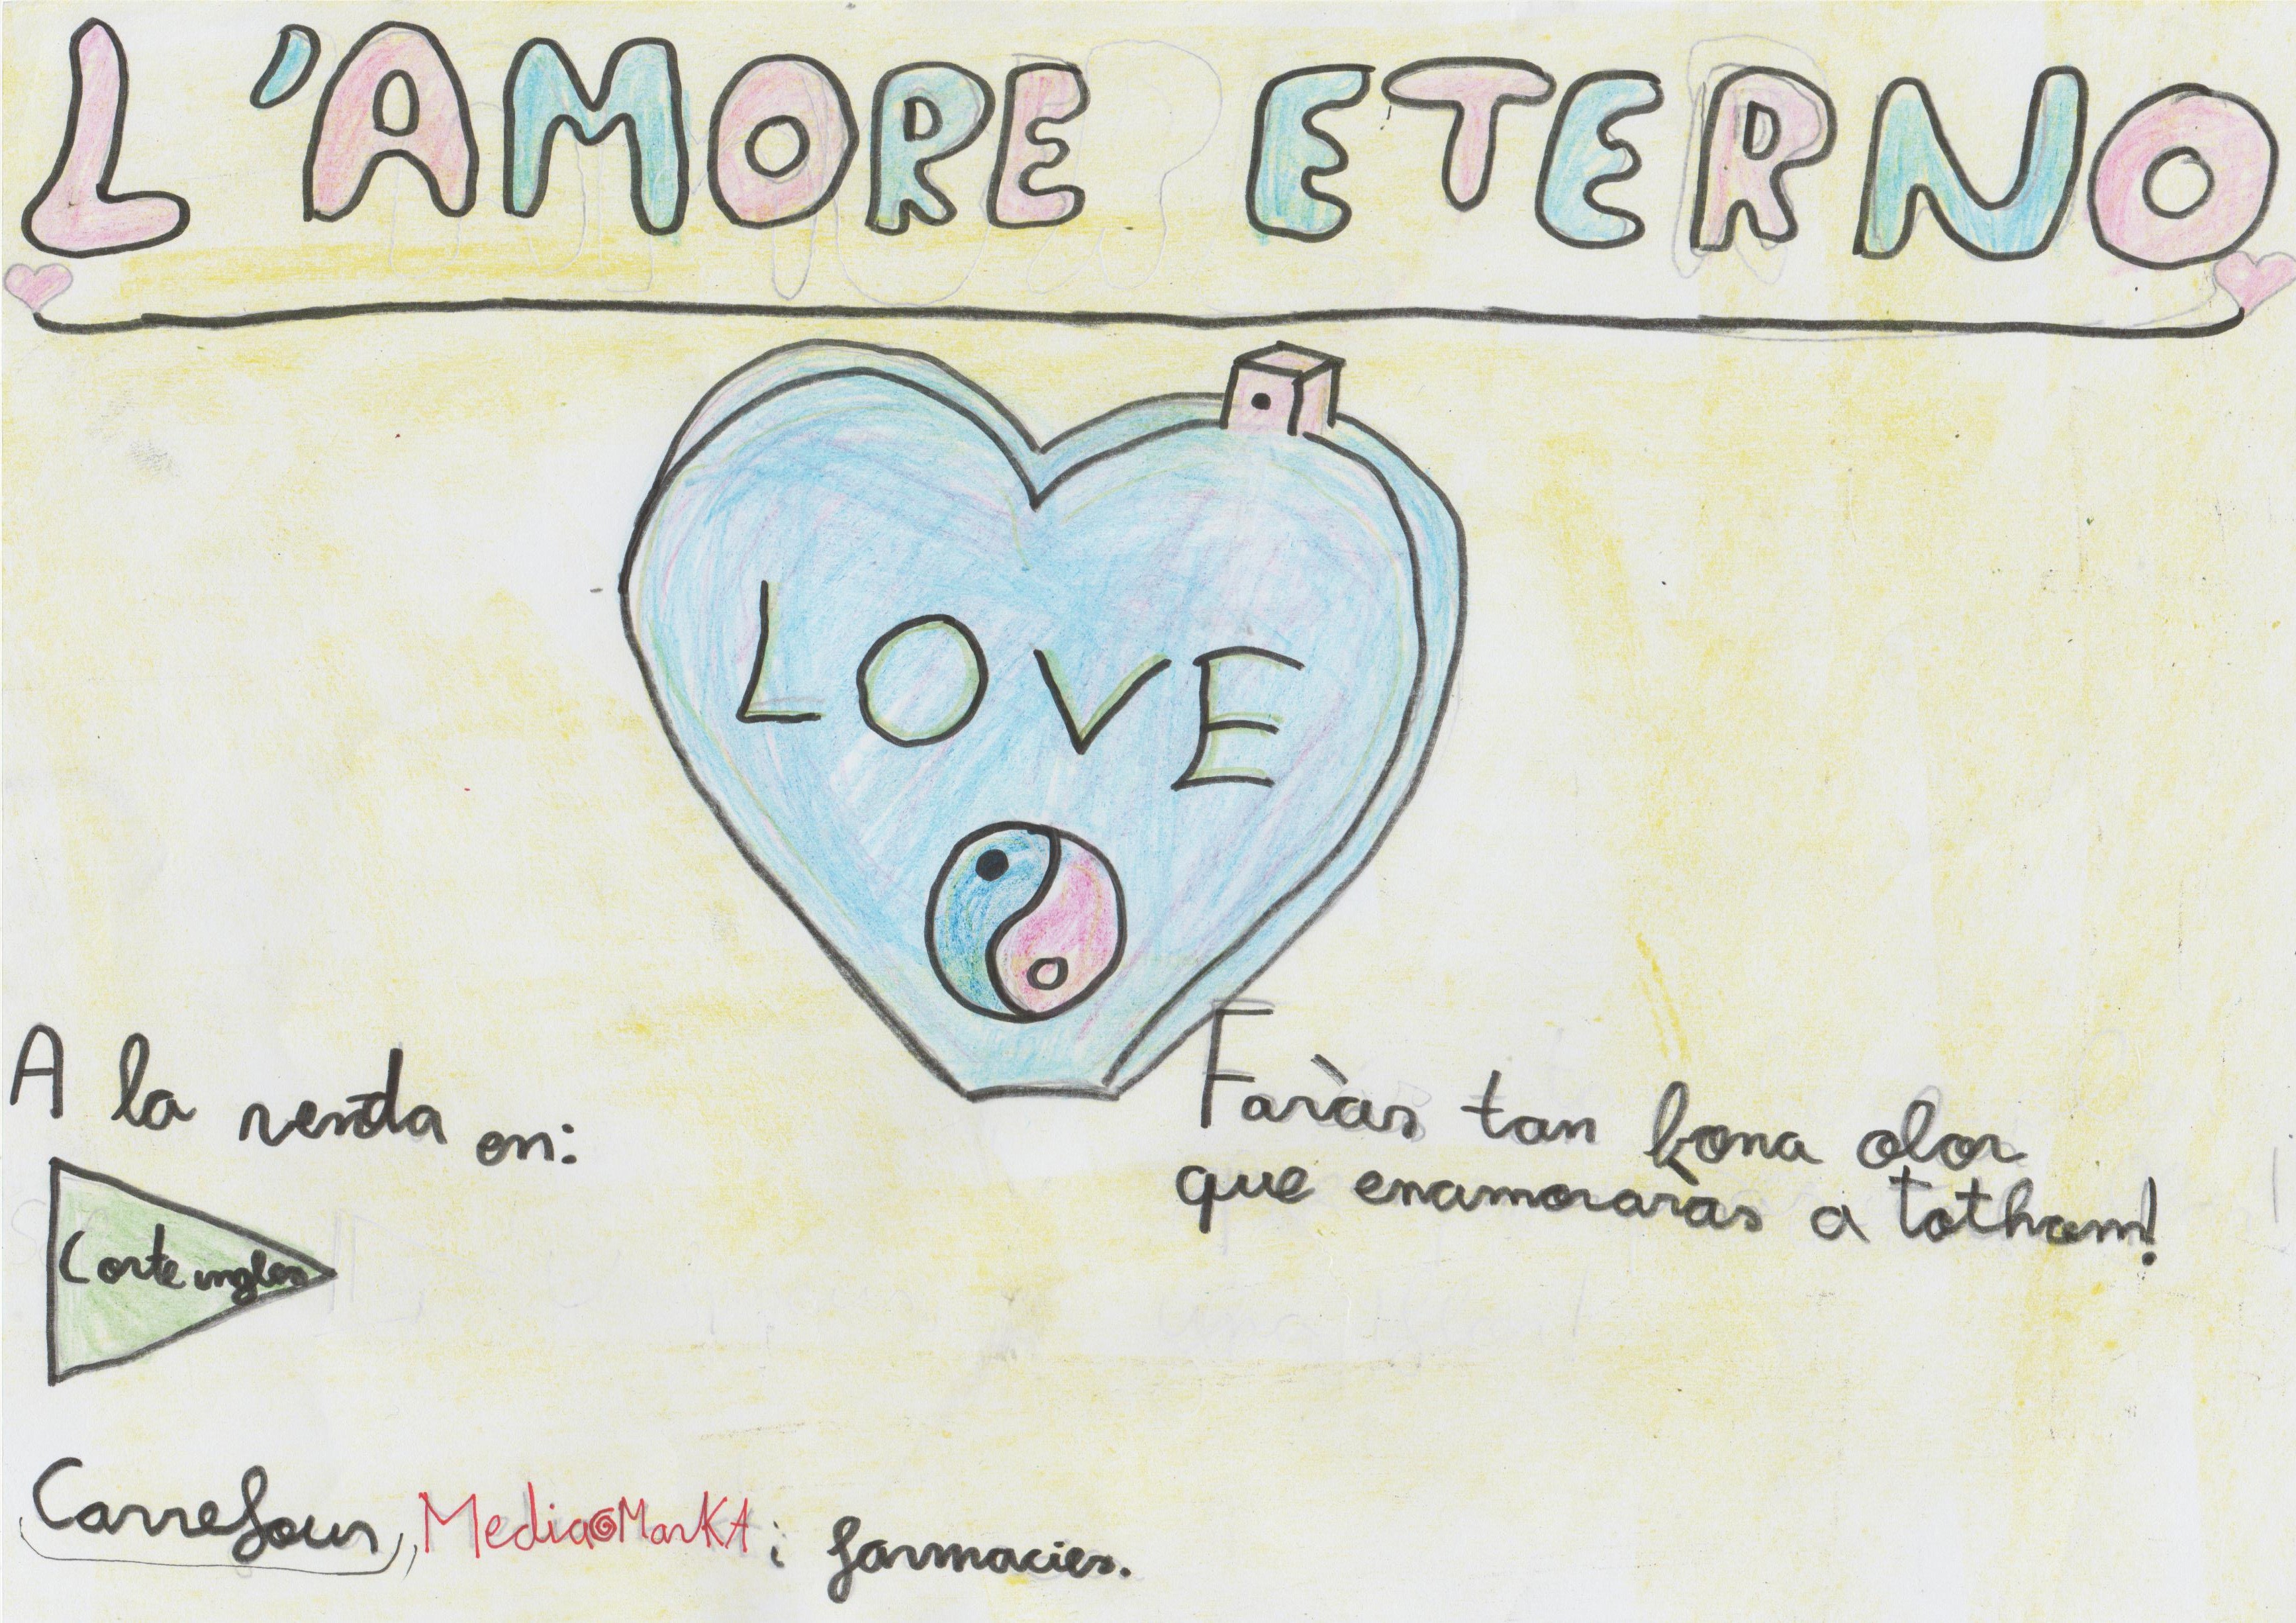 L'AMORE ETERNO
LOVE
A la venda en:
Corte ingles
Faràs tan bona olor
que enamoraràs a tothom!
Carrefour, Media Markt i farmacies.